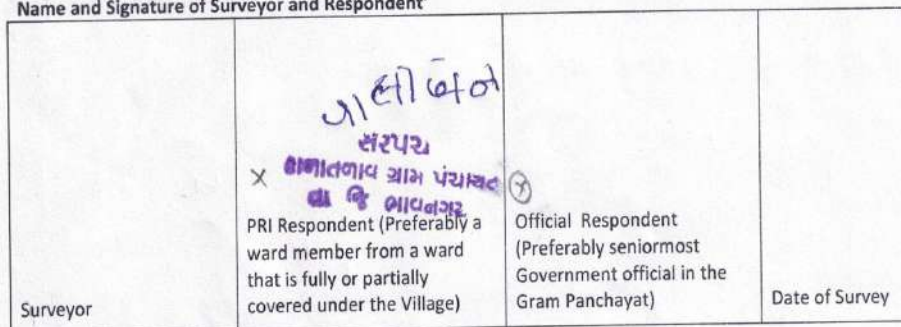 Name and Signature of Surveyor and Respondent
સરપંચ
ગ્રામ પંચાયત
તા જિ ભાવનગર
PRI Respondent (Preferably a
ward member from a ward
that is fully or partially
covered under the Village)
Official Respondent
(Preferably seniormost
Government official in the
Gram Panchayat)
Surveyor
Date of Survey